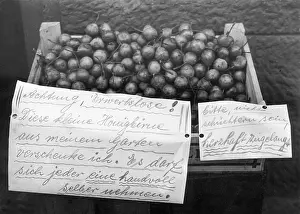 Achtung, Erwerbslose!
Diese kleine Honigbirne
aus meinem Garten
verschenke ich. Es darf
sich jeder eine handvoll
selber nehmen.
Bitte, nicht
schüchtern sein